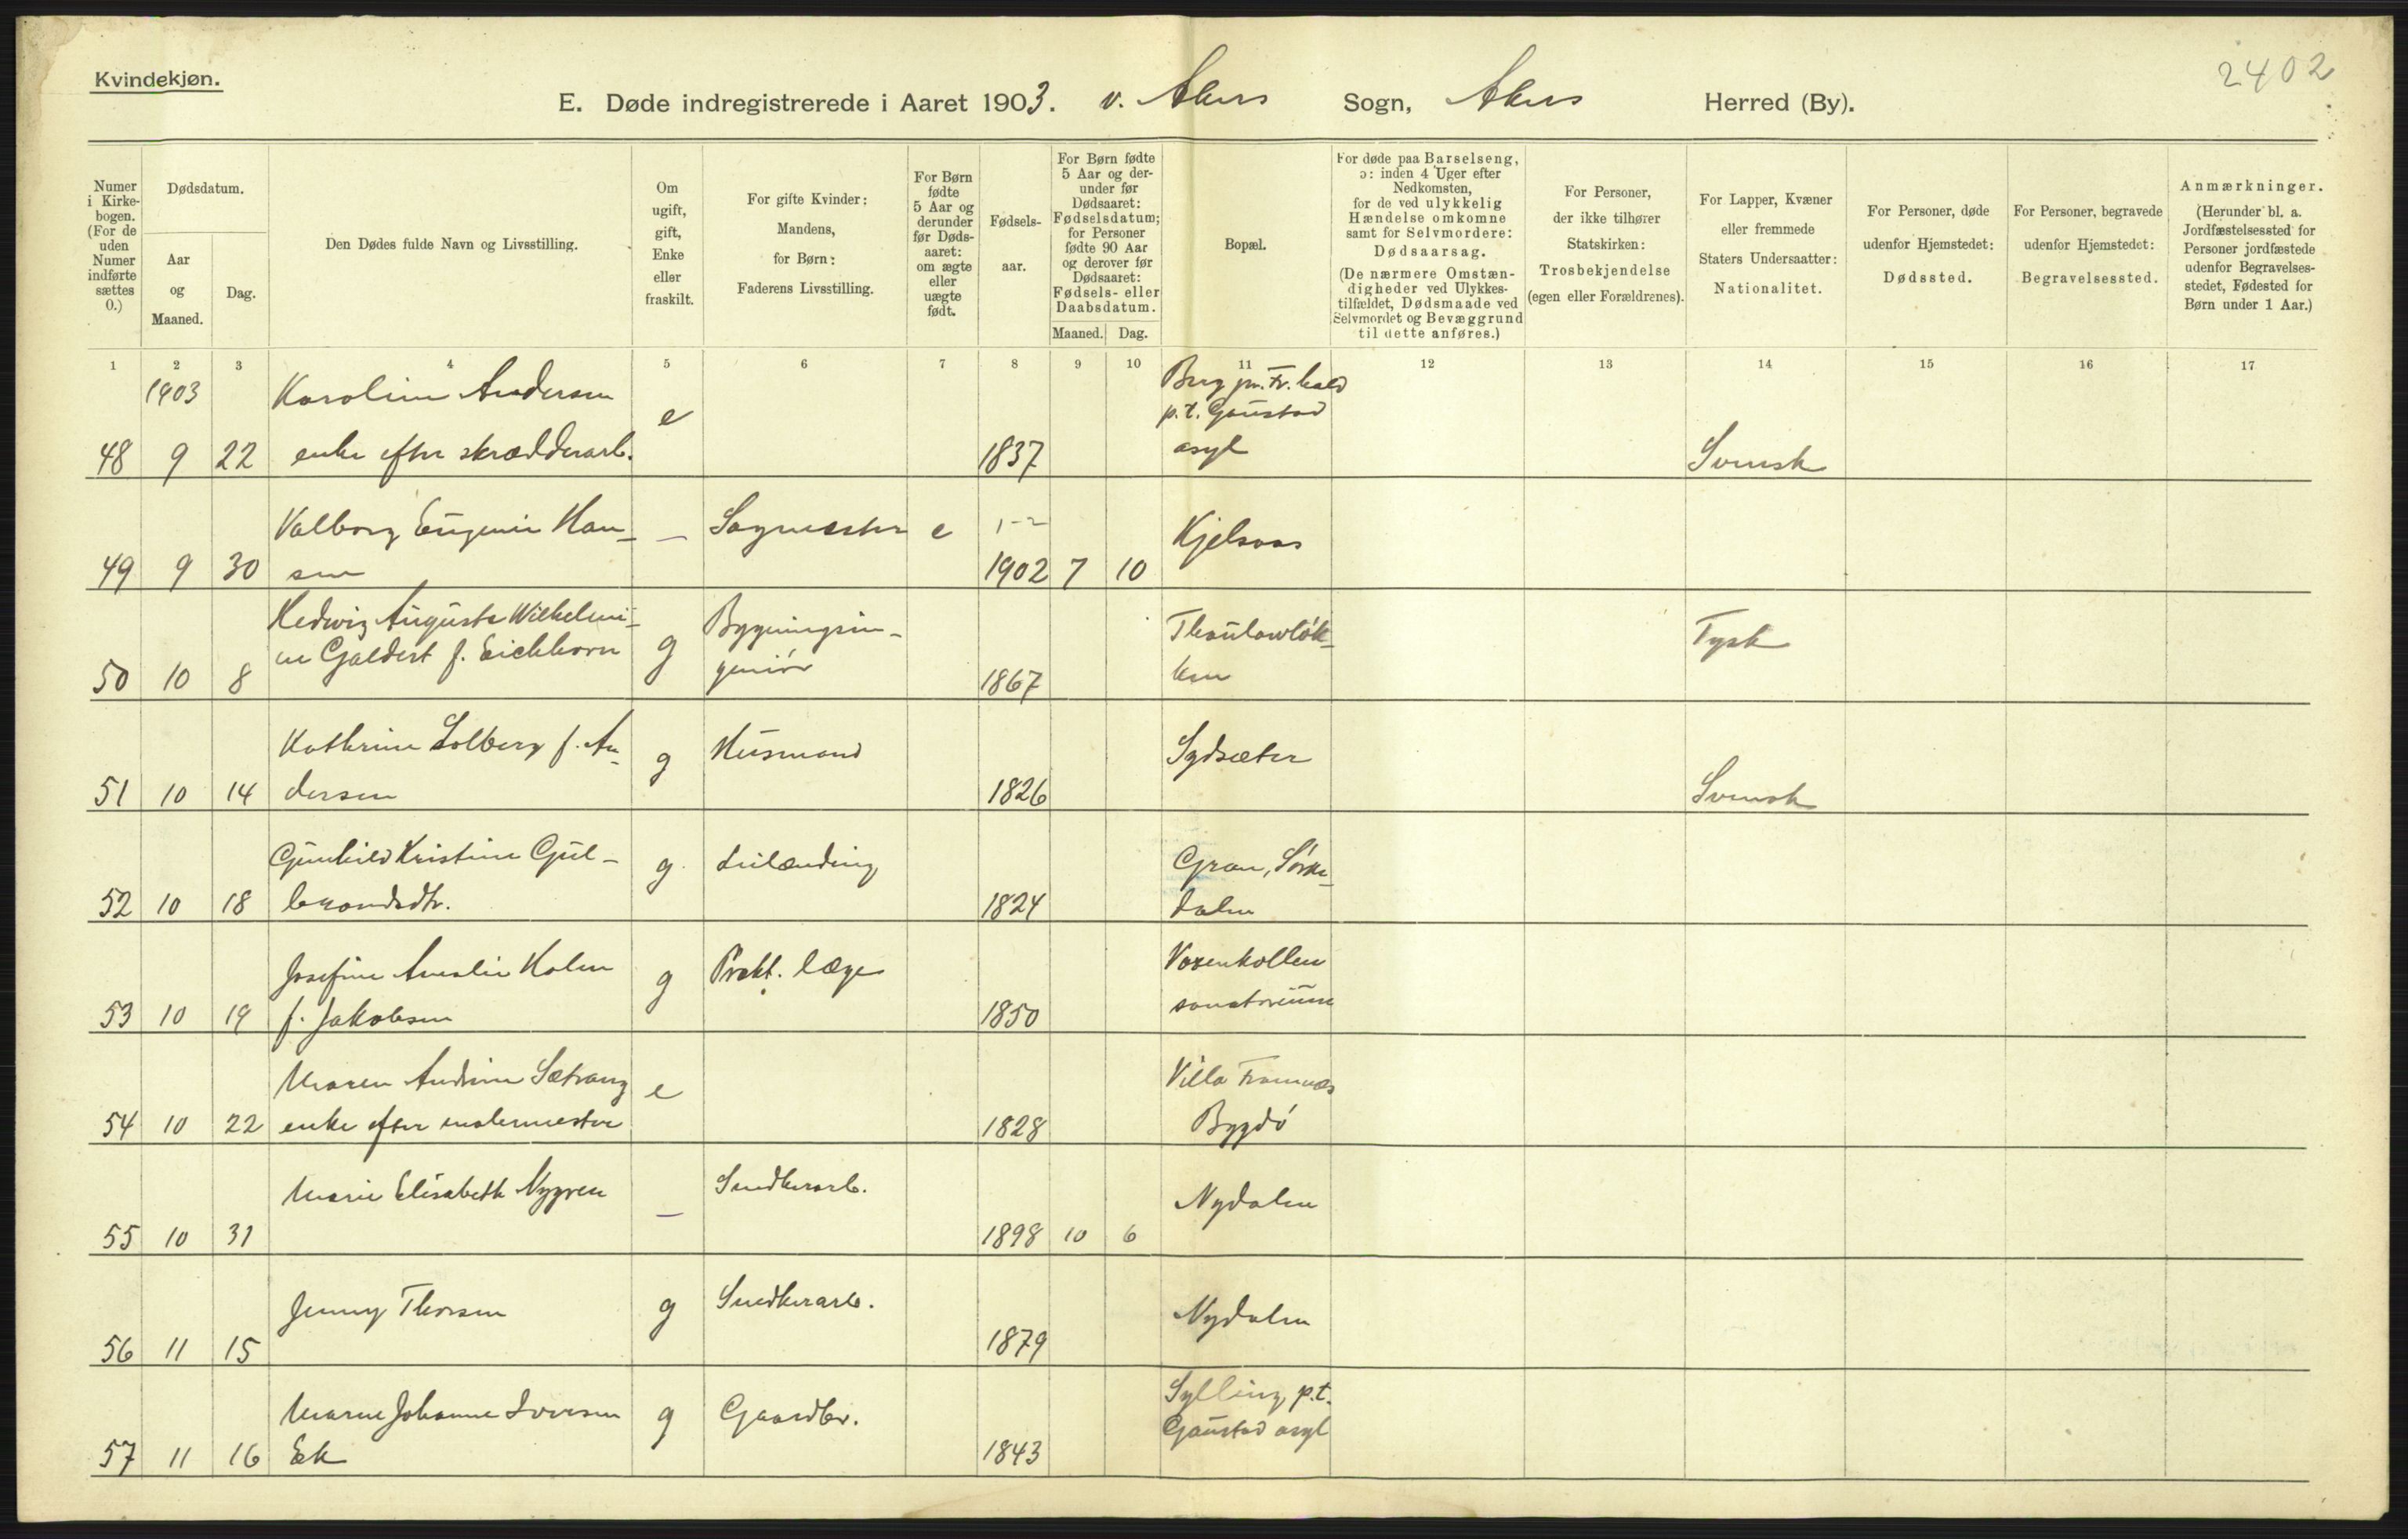 2402
Kvindekjøn.
E. Døde indregistrerede i Aaret 1903. v. Akers Sogn, Akers Herred (By).
Numer i Kirkebogen. (For de uden Numer indførte sættes 0.)
Dødsdatum.
Aar og Maaned.
Dag.
Den Dødes fulde Navn og Livsstilling.
Om ugift, gift, Enke eller fraskilt.
For gifte Kvinder: Mandens, for Børn: Faderens Livsstilling.
For Børn fødte 5 Aar og derunder før Dødsaaret: om ægte eller uægte født.
Fødselsaar.
For Børn fødte 5 Aar og derunder før Dødsaaret: Fødselsdatum; for Personer fødte 90 Aar og derover før Dødsaaret: Fødsels- eller Daabsdatum.
Maaned. Dag.
Bopæl.
For døde paa Barselseng, ɔ: inden 4 Uger efter Nedkomsten, for de ved ulykkelig Hændelse omkomne samt for Selvmordere: Dødsaarsag. (De nærmere Omstændigheder ved Ulykkestilfældet, Dødsmaade ved Selvmordet og Bevæggrund til dette anføres.)
For Personer, der ikke tilhører Statskirken: Trosbekjendelse (egen eller Forældrenes).
For Lapper, Kvæner eller fremmede Staters Undersaatter: Nationalitet.
For Personer, døde udenfor Hjemstedet: Dødssted.
For Personer, begravede udenfor Hjemstedet: Begravelsessted.
Anmærkninger. (Herunder bl. a. Jordfæstelsessted for Personer jordfæstede udenfor Begravelsesstedet, Fødested for Børn under 1 Aar.)
1 2 3 4 5 6 7 8 9 10 11 12 13 14 15 16 17
1903 Karoline Andersen e Berg pr. Fr.hald
p.t. Gaustad
48 9 22 enke efter skrædderarb. 1837 asyl Svensk
Valborg Eugenie Han- — Sagmester e 1-2 Kjelsaas
49 9 30 sen 1902 7 10
Hedwig Augusta Wilhelmi- g Bygningsin- Thaulowløk- Tysk
50 10 8 ne Galdert f. Eichhorn geniør 1867 ken
Kathrine Solberg f. An- g Husmand Sydsæter
51 10 14 dersen 1826 Svensk
Gunhild Kristine Gul- g Leilænding Gran, Sørke-
52 10 18 brandsdtr. 1824 dalen
Josefine Amalie Holm g Prakt. læge Voxenkollen
53 10 19 f. Jakobsen 1850 sanatorium
Maren Andrine Sætrang e Villa Framnæs
54 10 22 enke efter malermester 1828 Bygdø
Marie Elisabeth Nygren — Snedkerarb. Nydalen
55 10 31 1898 10 6
Jenny Thorsen g Snedkerarb. Nydalen
56 11 15 1879
Maren Johanne Iversen g Gaardbr. Sylling p.t.
Gaustad asyl
57 11 16 Ek 1843